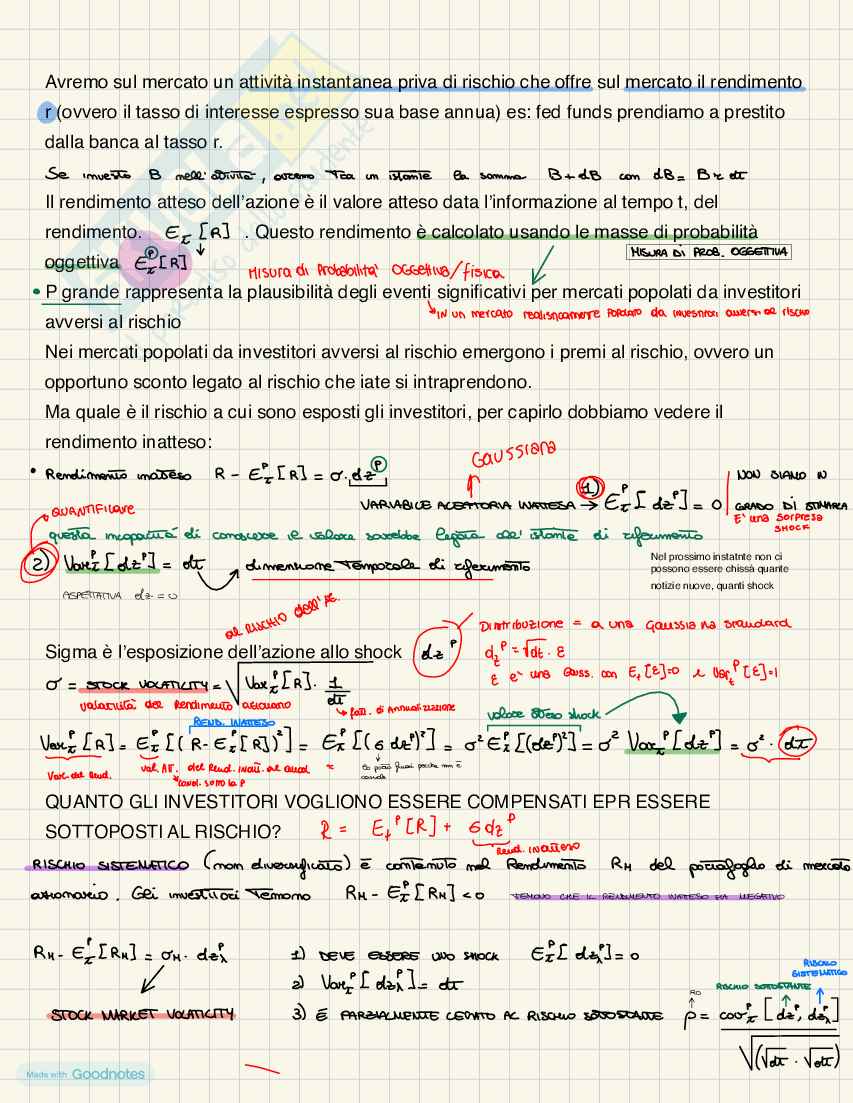 Avremo sul mercato un attività instantanea priva di rischio che offre sul mercato il rendimento
r (ovvero il tasso di interesse espresso sua base annua) es: fed funds prendiamo a prestito
dalla banca al tasso r.
Se investo B nell'attività, avremo tra un istante la somma B+dB con dB = Br dt
Il rendimento atteso dell'azione è il valore atteso data l'informazione al tempo t, del
rendimento. E_t [R] . Questo rendimento è calcolato usando le masse di probabilità
MISURA DI PROB. OGGETTIVA
oggettiva E_t^P [R]
MISURA di Probabilità OGGETTIVA/fisica
• P grande rappresenta la plausibilità degli eventi significativi per mercati popolati da investitori
IN UN MERCATO REALISTICAMENTE POPOLATO DA INVESTITORI AVVERSI AL RISCHIO
avversi al rischio
Nei mercati popolati da investitori avversi al rischio emergono i premi al rischio, ovvero un
opportuno sconto legato al rischio che iate si intraprendono.
Ma quale è il rischio a cui sono esposti gli investitori, per capirlo dobbiamo vedere il
rendimento inatteso:
Gaussiana
• Rendimento inatteso R - E_t^P [R] = σ · dz^P
VARIABILE ALEATORIA INATTESA → 1) E_t^P [dz^P] = 0
NON SIAMO IN
GRADO DI STIMARLA
E' UNA SORPRESA
SHOCK
QUANTIFICARE
questa incapacità di conoscere il valore sarebbe legata all'istante di riferimento
2) Var_t^P [dz^P] = dt dimensione temporale di riferimento
Nel prossimo instatnte non ci
possono essere chissà quante
notizie nuove, quanti shock
ASPETTATIVA dz = 0
al RISCHIO dell'
Distribuzione = a una Gaussiana standard
Sigma è l'esposizione dell'azione allo shock dz^P
dz^P = √dt · ε
ε è una Gauss. con E_t [ε]=0 e Var_t^P [ε]=1
σ = STOCK VOLATILITY = √(Var_t^P [R] · 1/dt)
volatilità del rendimento azionario
fatt. di Annualizzazione
REND. INATTESO
valore atteso shock
Var_t^P [R] = E_t^P [(R - E_t^P [R])^2] = E_t^P [(σ dz^P)^2] = σ^2 E_t^P [(dz^P)^2] = σ^2 Var_t^P [dz^P] = σ^2 · dt
Var. del Rend.
val. AT. del Rend. inatt. al quad =
condi. sotto la P
lo porto fuori perché non è
QUANTO GLI INVESTITORI VOGLIONO ESSERE COMPENSATI EPR ESSERE
SOTTOPOSTI AL RISCHIO? R = E_t^P [R] + σ dz^P
Rend. inatteso
RISCHIO SISTEMATICO (non diversificato) è contenuto nel Rendimento R_M del portafoglio di mercato
azionario. Gli investitori temono R_M - E_t^P [R_M] < 0 TEMONO CHE IL RENDIMENTO INATTESO SIA NEGATIVO
R_M - E_t^P [R_M] = σ_M · dz_λ^P
STOCK MARKET VOLATILITY
1) DEVE ESSERE UNO SHOCK E_t^P [dz_λ^P] = 0
2) Var_t^P [dz_λ^P] = dt
3) È PARZIALMENTE LEGATO AL RISCHIO SOTTOSTANTE
RISCHIO SOTTOSTANTE
RISCHIO
SISTEMATICO
RO
ρ = cov_t^P [dz^P, dz_λ^P] / √(√dt · √dt)
Made with Goodnotes